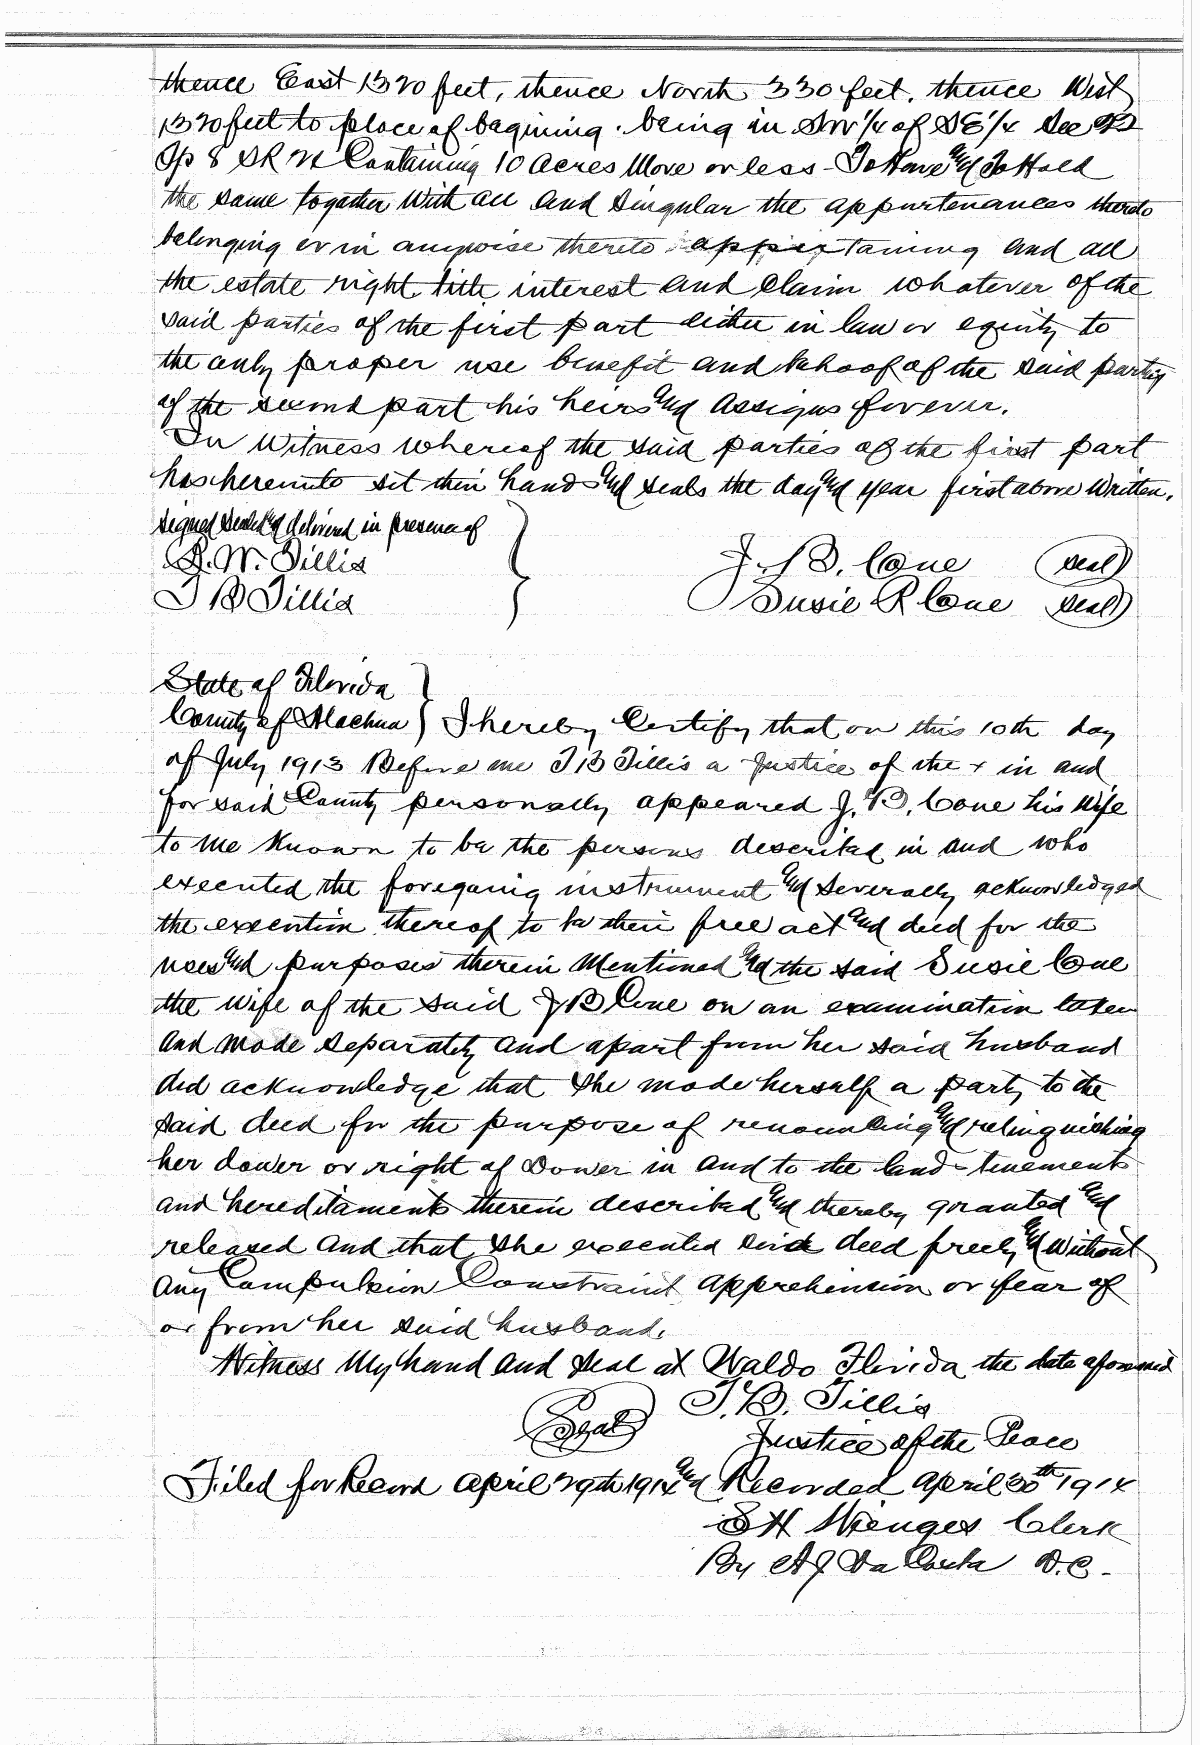 thence East 1320 feet, thence North 330 feet. thence West
1320 feet to place of bagining. being in SW 1/4 of SE 1/4 Sec
Tp 8 S R 21 Containing 10 acres More or less - To Have and To Hold
the same together With all and singular the appurtenances thereto
belonging or in anywise thereto appertaining and all
the estate right title interest and Claim whatever of the
said parties of the first part either in law or equity to
the only proper use benefit and behoof of the said party
of the second part his heirs and assigns forever.
In Witness whereof the said parties of the first part
has hereunto set their hands and seals the day and year first above Written.
signed sealed and delivered in presence of
R. W. Tillis J. B. Cone (seal)
T B Tillis Susie R Cone (seal)
State of Florida
County of Alachua } I hereby Certify that on this 10th day
of July 1913 Before me T B Tillis a Justice of the + in and
for said County personally appeared J. B. Cone his Wife
to me Known to be the persons described in and who
executed the foregoing instrument and severally acknowledged
the execution thereof to be their free act and deed for the
uses and purposes therein Mentioned and the said Susie Cone
the wife of the said J B Cone on an examination taken
and made separately and apart from her said husband
did acknowledge that she made herself a party to the
said deed for the purpose of renouncing and relinquishing
her dower or right of Dower in and to the land - tenements
and hereditaments therein described and thereby granted and
released and that she executed said deed freely and Without
any Compulsion Constraint apprehension or fear of
or from her said husband.
Witness My hand and seal at Waldo Florida the date aforesaid
T. B. Tillis
(Seal) Justice of the Peace
Filed for Record April 29th 1914 and Recorded April 30th 1914
S H Wienges Clerk
By A J Da Costa D.C.